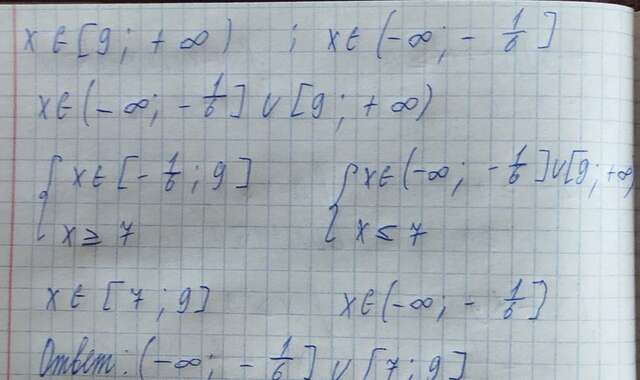 x ∈ [9; +∞) ; x ∈ (-∞; -1/6]
x ∈ (-∞; -1/6] ∪ [9; +∞)
{ x ∈ [-1/6; 9] { x ∈ (-∞; -1/6] ∪ [9; +∞
x ≥ 7 x ≤ 7
x ∈ [7; 9] x ∈ (-∞; -1/6]
Ответ: (-∞; -1/6] ∪ [7; 9]